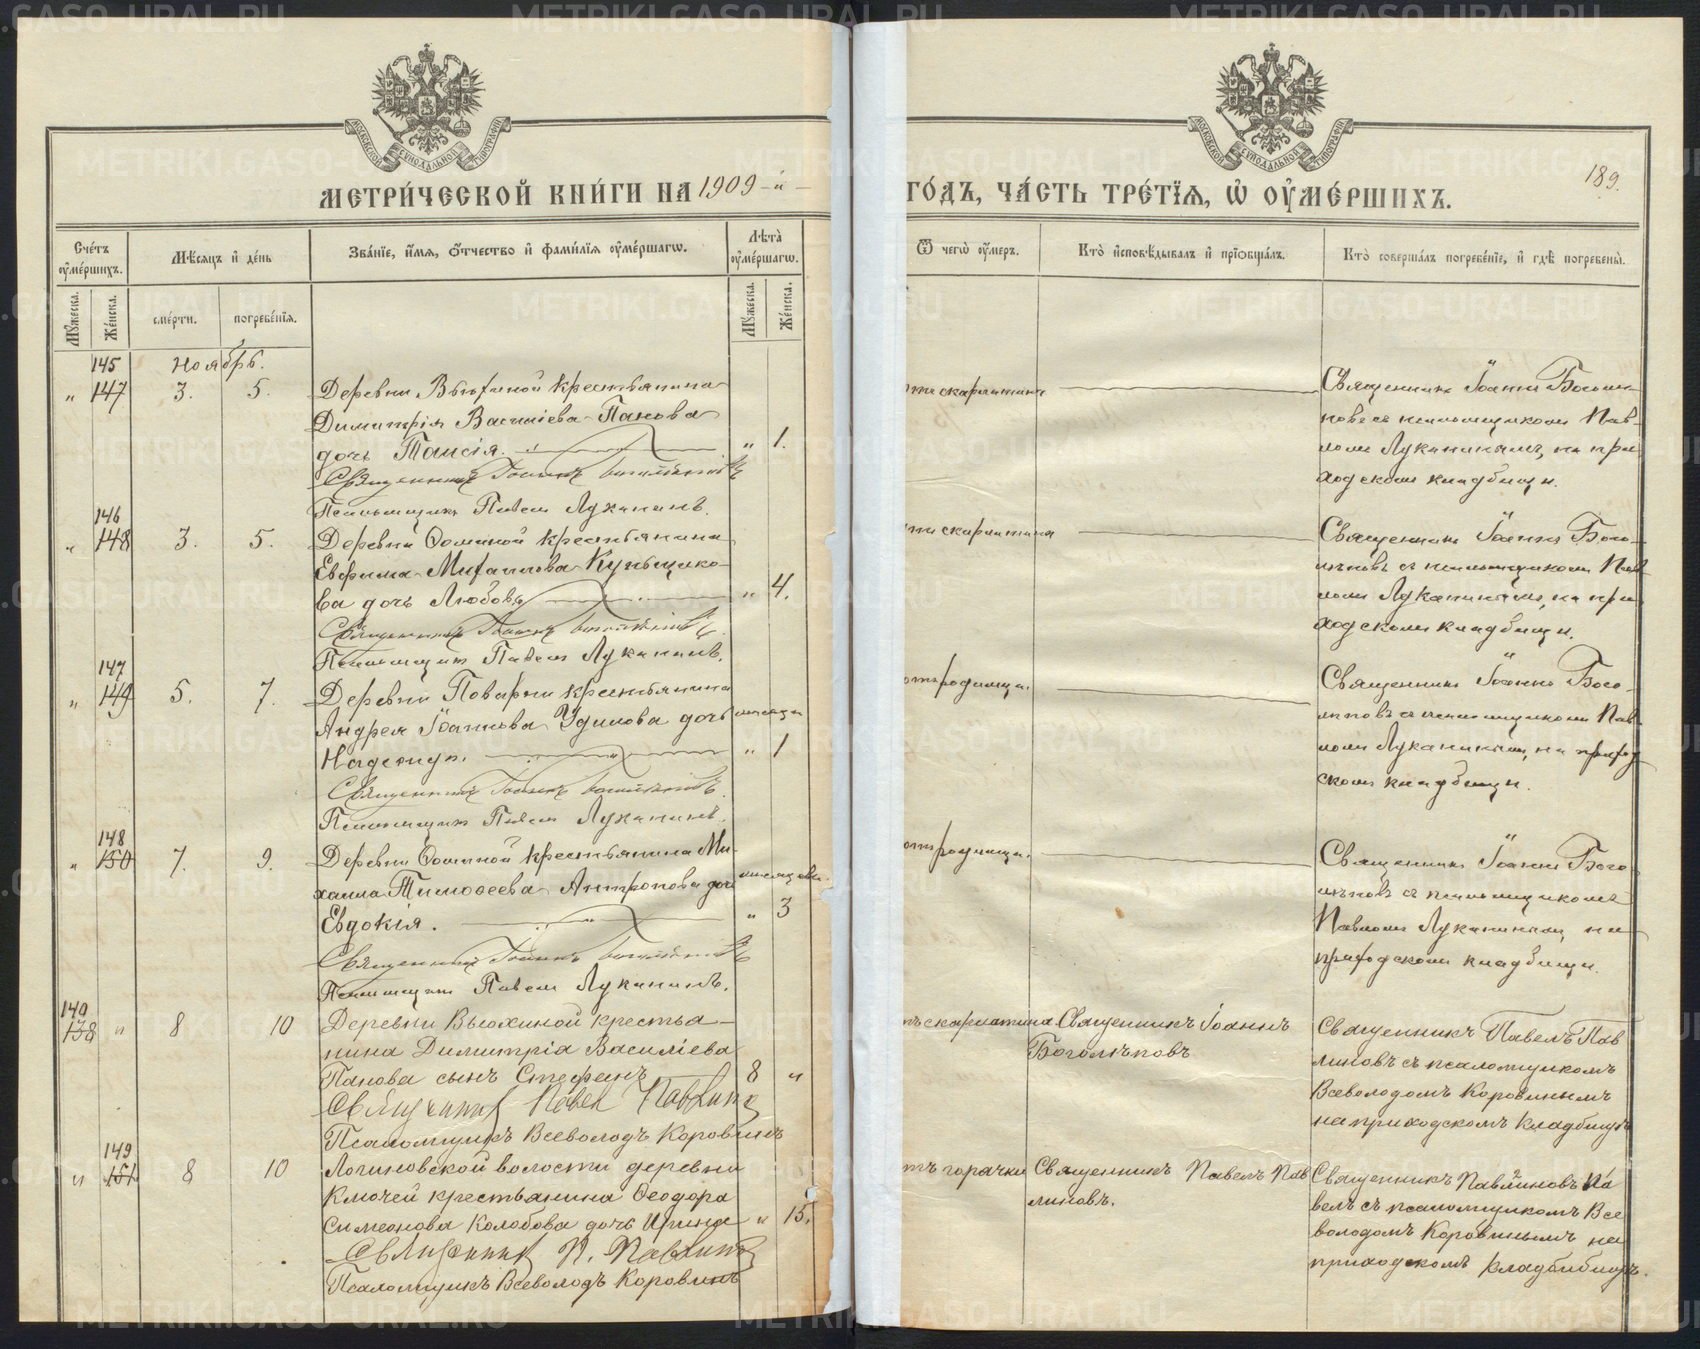 МОСКОВСКОЙ СѴНОДАЛЬНОЙ ТИПОГРАФІИ
МОСКОВСКОЙ СѴНОДАЛЬНОЙ ТИПОГРАФІИ
МЕТРИ́ЧЕСКОЙ КНИ́ГИ НА 1909-й
ГО́ДЪ, ЧА́СТЬ ТРЕ́ТЇЯ, Ѡ҆ ОУ҆МЕ́РШИХЪ.
189.
Сче́тъ оу҆ме́ршихъ.
Мѣ́сяцъ и҆ де́нь
Зва́нїе, и҆́мя, ѻ҆́тчество и҆ фами́лїя оу҆ме́ршагѡ.
Лѣ́та оу҆ме́ршагѡ.
Ѿ чегѡ̀ оу҆́меръ.
Кто̀ и҆сповѣ́дывалъ и҆ прїѻбща́лъ.
Кто̀ соверша́лъ погребе́нїе, и҆ гдѣ̀ погребены̀.
Мꙋ́жеска.
Же́нска.
сме́рти.
погребе́нїя.
Мꙋ́жеска.
Же́нска.
145 Ноябрь.
" 147 3. 5. Деревни Вьюхиной крестьянина
Димитрія Василіева Панова
дочь Таисія. " 1.
Священникъ Іоаннъ Боголѣповъ
Псаломщикъ Павелъ Луканинъ.
отъ скарлатины
Священникъ Іоаннъ Боголѣ-
повъ съ псаломщикомъ Пав-
ломъ Луканинымъ, на при-
ходскомъ кладбищѣ.
146
" 148 3. 5. Деревни Ѳоминой крестьянина
Евфима Михаилова Купьщико-
ва дочь Любовь " 4.
Священникъ Іоаннъ Боголѣповъ
Псаломщикъ Павелъ Луканинъ.
отъ скарлатина
Священникъ Іоаннъ Бого-
лѣповъ съ псаломщикомъ Пав-
ломъ Луканинымъ, на при-
ходскомъ кладбищѣ.
147
" 149 5. 7. Деревни Поварни крестьянина
Андрея Іоаннова Удилова дочь мѣсяца
Надежда. " 1
Священникъ Іоаннъ Боголѣповъ
Псаломщикъ Павелъ Луканинъ.
отъ родимца.
Священникъ Іоаннъ Бого-
лѣповъ съ псаломщикомъ Пав-
ломъ Луканинымъ, на приход-
скомъ кладбищѣ.
148
" 150 7. 9. Деревни Ѳоминой крестьянина Ми-
хаила Тимоѳеева Антропова дочь мѣсяцевъ.
Евдокія. " 3
Священникъ Іоаннъ Боголѣповъ
Псаломщикъ Павелъ Луканинъ.
отъ родимца.
Священникъ Іоаннъ Бого-
лѣповъ съ псаломщикомъ
Павломъ Луканинымъ, на
приходскомъ кладбищѣ.
140
138 " 8 10 Деревни Вьюхиной крестья-
нина Димитрія Василіева
Панова сынъ Стефанъ 8 "
Священникъ Павелъ Павлиновъ
Псаломщикъ Всеволодъ Коровинъ
отъ скарлатина Священникъ Іоаннъ
Боголѣповъ
Священникъ Павелъ Пав
линовъ съ псаломщикомъ
Всеволодомъ Коровинымъ
на приходскомъ кладбищѣ
149
" 151 8 10 Логиновской волости деревни
Ключей крестьянина Ѳеодора
Симеонова Колобова дочь Ирина " 15.
Священникъ П. Павлиновъ
Псаломщикъ Всеволодъ Коровинъ
отъ горячки Священникъ Павелъ Пав
линовъ.
Священникъ Павлиновъ Па
велъ съ псаломщикомъ Все
володомъ Коровинымъ на
приходскомъ кладбибищѣ.
METRIKI.GASO-URAL.RU